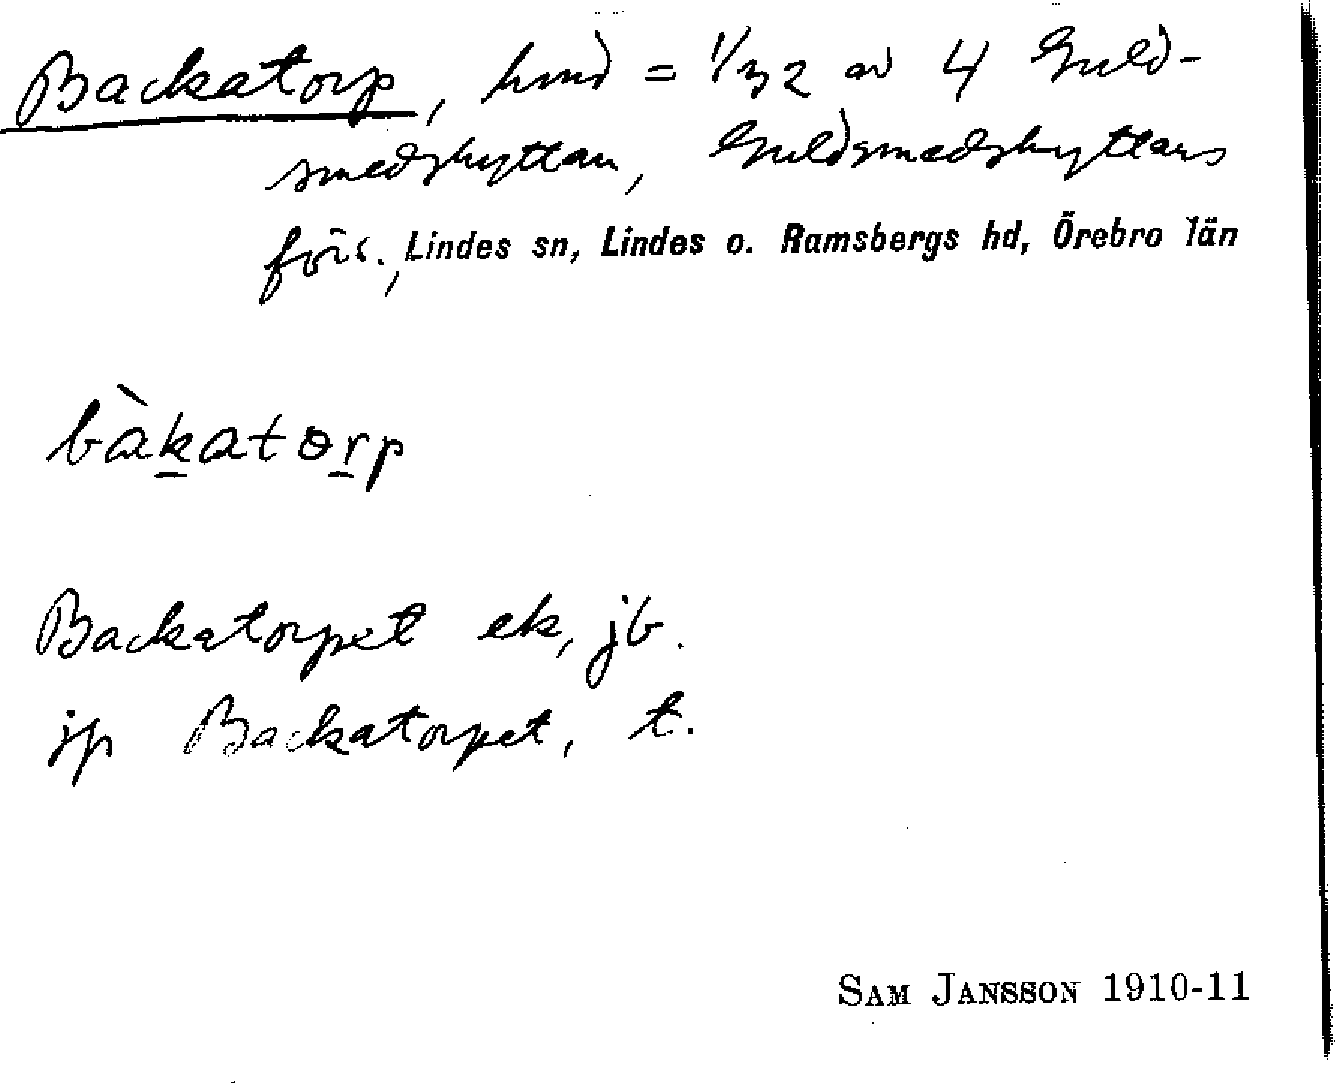 Backatorp, hmd = 1/32 av 4 Guld-
smedshyttan, Guldsmedshyttans
förs., Lindes sn, Lindes o. Ramsbergs hd, Örebro län
bàk̠ator̠p
Backatorpet ek, jb.
jp Backatorpet, t.
SAM JANSSON 1910-11